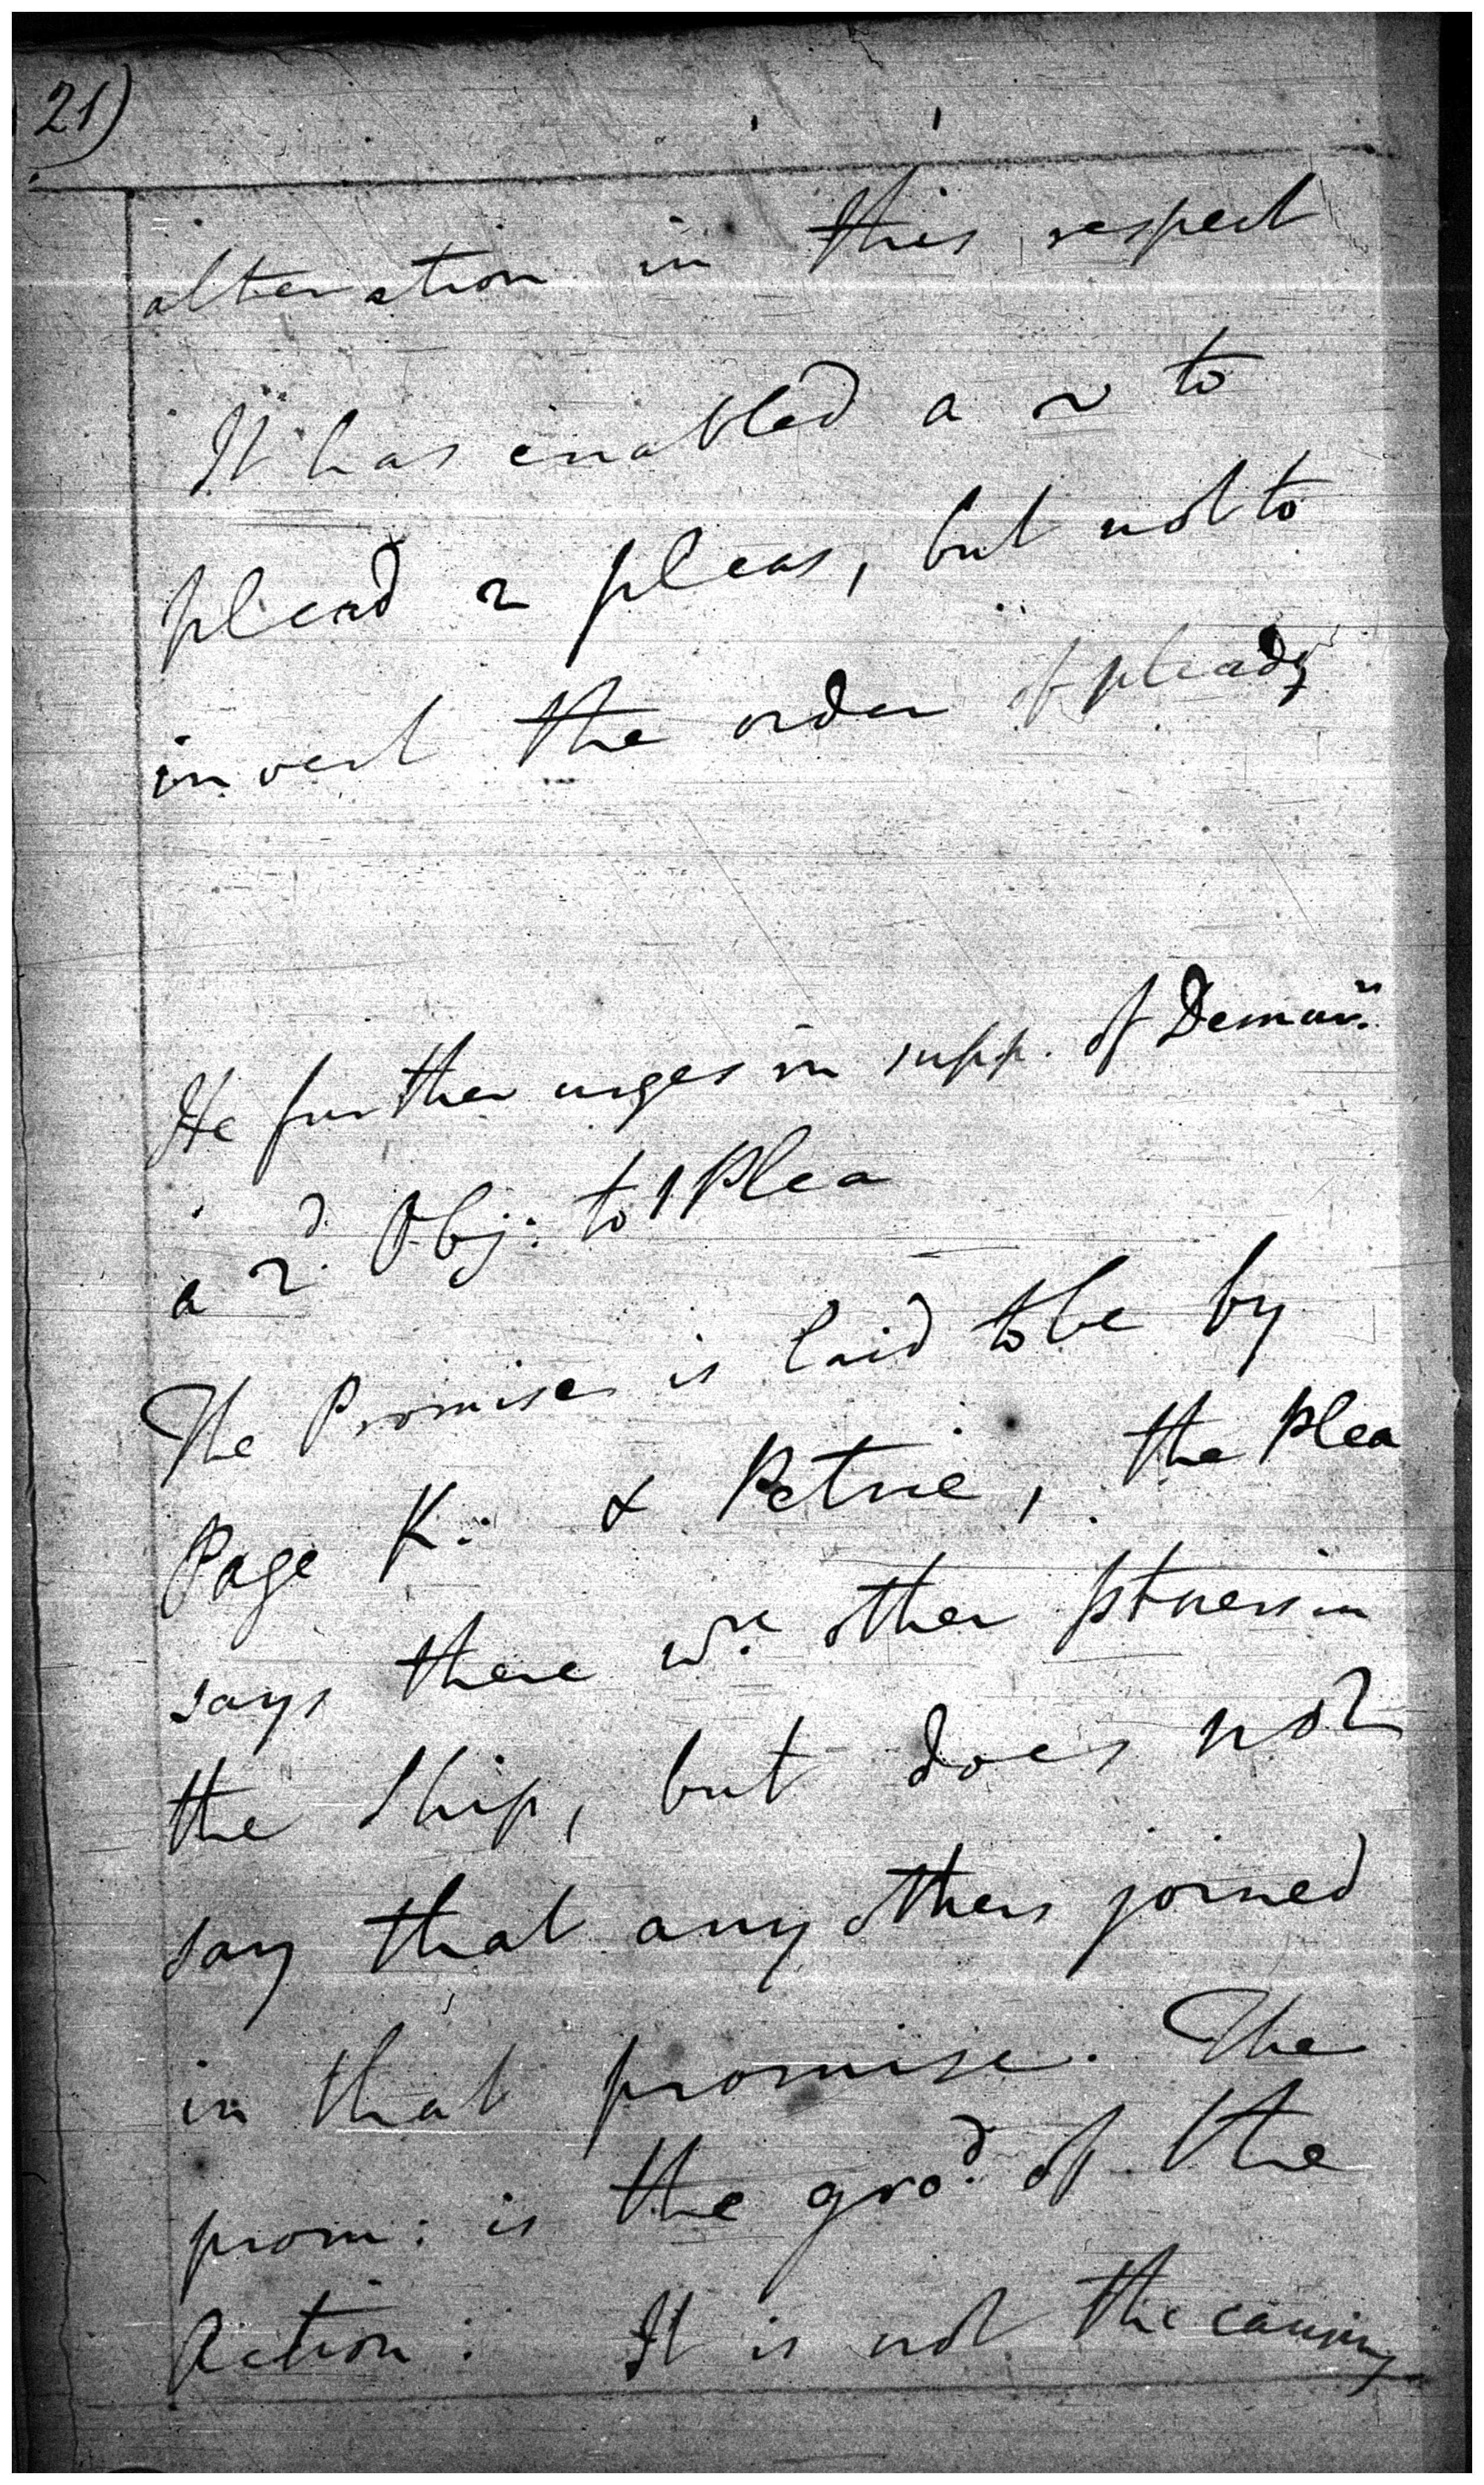 21)
alteration in this respect
It has enabled a to
plead 2 pleas, but not to
invert the order of pleadg
He further urges in supp. of Demurr.
a 2d. Obj: to 1 Plea
The Promise is laid to be by
Page K. & Petrie, the Plea
says there wre other ptners in
the Ship, but does not
say that any others joined
in that promise. The
prom: is the grod. of the
Action: It is not the causing